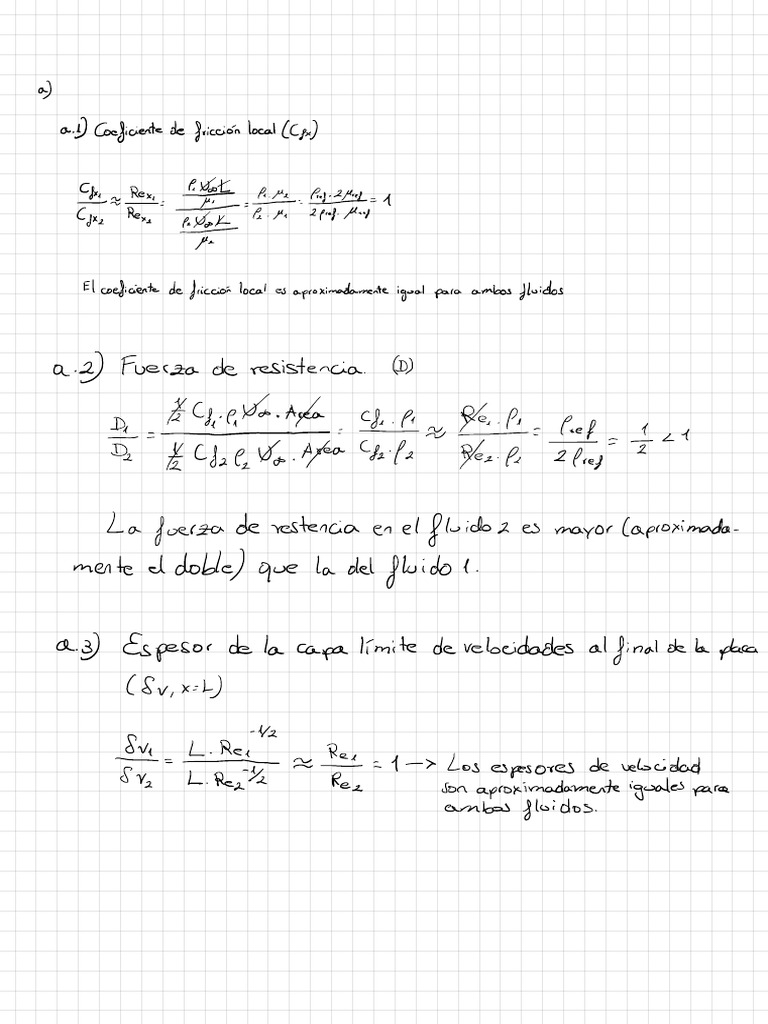 a)
a.1) Coeficiente de fricción local (Cfx)
Cfx₁/Cfx₂ ≈ Rex₁/Rex₂ = (ρ₁ V∞ L/μ₁)/(ρ₂ V∞ L/μ₂) = ρ₁·μ₂/ρ₂·μ₁ = ρref·2μref/2ρref·μref = 1
El coeficiente de fricción local es aproximadamente igual para ambos fluidos
a.2) Fuerza de resistencia. (D)
D₁/D₂ = (1/2 Cf₁·ρ₁ V∞·Area)/(1/2 Cf₂ ρ₂ V∞·Area) = Cf₁·ρ₁/Cf₂·ρ₂ ≈ Re₁·ρ₁/Re₂·ρ₂ = ρref/2ρref = 1/2 < 1
La fuerza de restencia en el fluido 2 es mayor (aproximada-
mente el doble) que la del fluido 1.
a.3) Espesor de la capa límite de velocidades al final de la placa
(δv, x=L)
δv₁/δv₂ = L·Re₁^-1/2 / L·Re₂^-1/2 ≈ Re₁/Re₂ = 1 → Los espesores de velocidad
son aproximadamente iguales para
ambos fluidos.